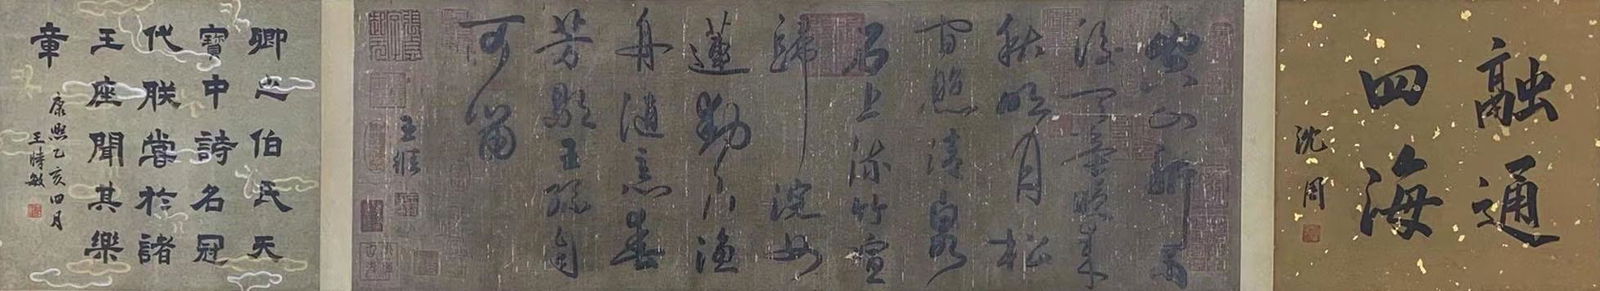 融通
四海
沈周
空山新雨
後天氣晚來
秋明月松
間照清泉
石上流竹喧
歸浣女
蓮動下漁
舟隨意春
芳歇王孫自
可留
王維
卿之伯氏天
寶中詩名冠
代朕嘗於諸
王座聞其樂
章
康熙乙亥四月
王時敏